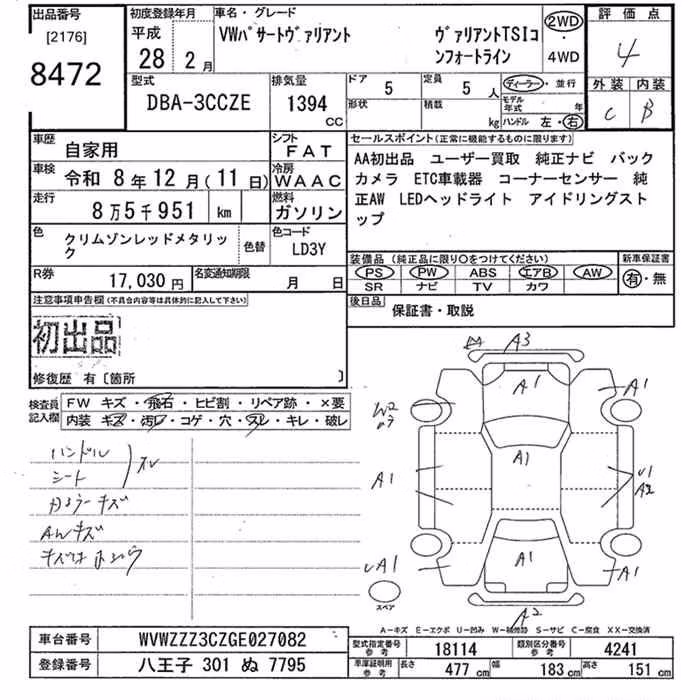 出品番号
[2176]
8472
初度登録年月
平成
28 2月
車名・グレード
VWパサートヴァリアント ヴァリアントTSIコンフォートライン
2WD
・
4WD
評価点
4
外装 内装
C B
型式
DBA-3CCZE
排気量
1394
CC
ドア 5
定員 5 人
形状
積載 kg
ディーラー・並行
モデル年式 年
ハンドル 左・右
車歴 自家用
シフト FAT
車検 令和 8年12月(11日)
冷房 WAAC
走行 8万5千951 km
燃料 ガソリン
色 クリムゾンレッドメタリック
色替
色コード LD3Y
R券 17,030円
名変通知期限 月 日
セールスポイント(正常に機能するものに限ります)
AA初出品 ユーザー買取 純正ナビ バック
カメラ ETC車載器 コーナーセンサー 純
正AW LEDヘッドライト アイドリングスト
ップ
装備品(純正品に限り○をつけてください)
PS PW ABS エアB AW
SR ナビ TV カワ
新車保証書
有・無
後日品
保証書・取説
注意事項申告欄(不具合内容等は具体的に記入して下さい)
初出品
修復歴 有〔箇所 〕
検査員
記入欄
FW キズ・飛石・ヒビ割・リペア跡・×要
内装 キズ・汚レ・コゲ・穴・スレ・キレ・破レ
ハンドル
シート
スレ
AWキズ
A3
A1
A1
A1
A1
A1
A2
A1
A1
A2
スペア
A－キズ E－エクボ U－凹み W－補修跡 S－サビ C－腐食 XX－交換済
車台番号 WVWZZZ3CZGE027082
登録番号 八王子 301 ぬ 7795
型式指定番号 参考 18114
類別区分番号 参考 4241
車庫証明用 参考 長さ 477 cm 幅 183 cm 高さ 151 cm